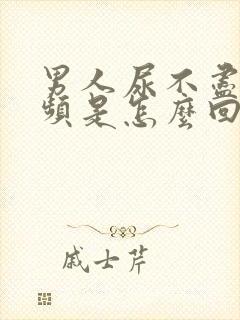 男人尿不盡
頻是怎麼回
戚士芹